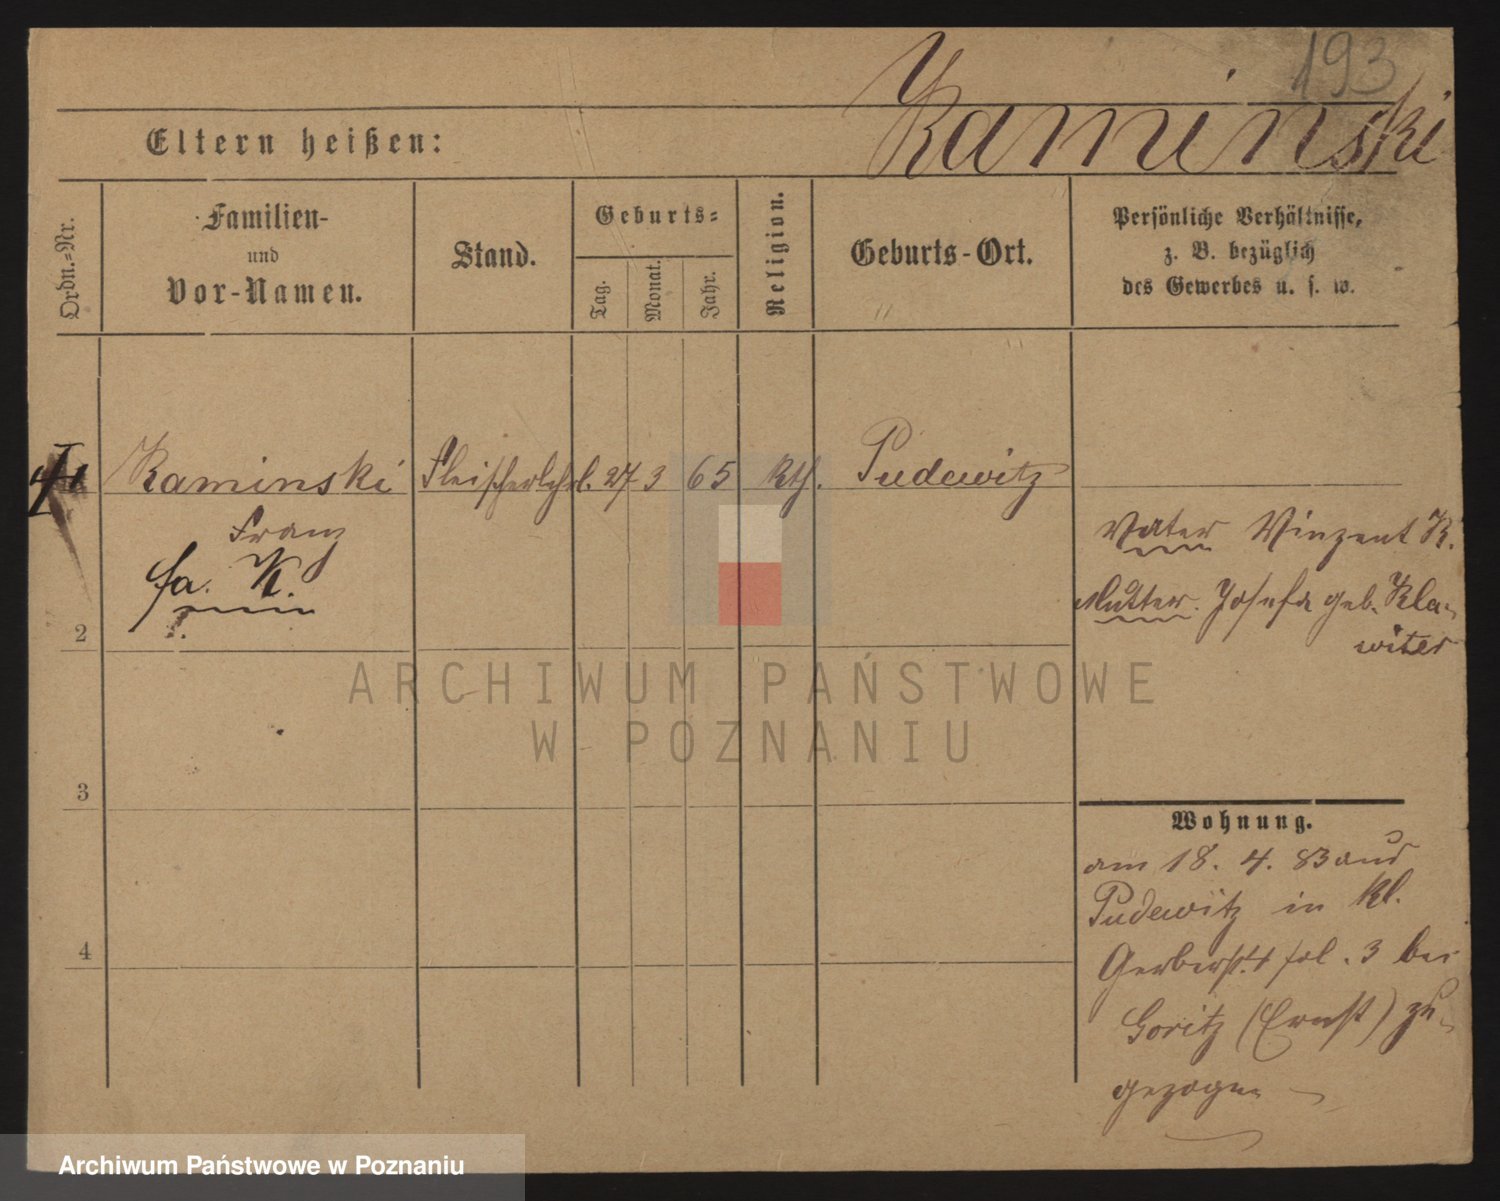 193
Kaminski
Eltern heißen:
Ordn.=Nr.
Familien-
und
Vor-Namen.
Stand.
Geburts=
Tag.
Monat.
Jahr.
Religion.
Geburts-Ort.
Persönliche Verhältnisse,
z. B. bezüglich
des Gewerbes u. s. w.
Kaminski Fleischerlehrl. 27 3 65 kth. Pudewitz
Franz
fa. K.
Vater Vinzent K.
Mutter Josefa geb. Kla-
witer
2
3
4
Wohnung.
am 18. 4. 83 aus
Pudewitz in Kl.
Gerberst. 4 fol. 3 bei
Goritz (Ernst) zu-
gezogen
ARCHIWUM PAŃSTWOWE
W POZNANIU
Archiwum Państwowe w Poznaniu